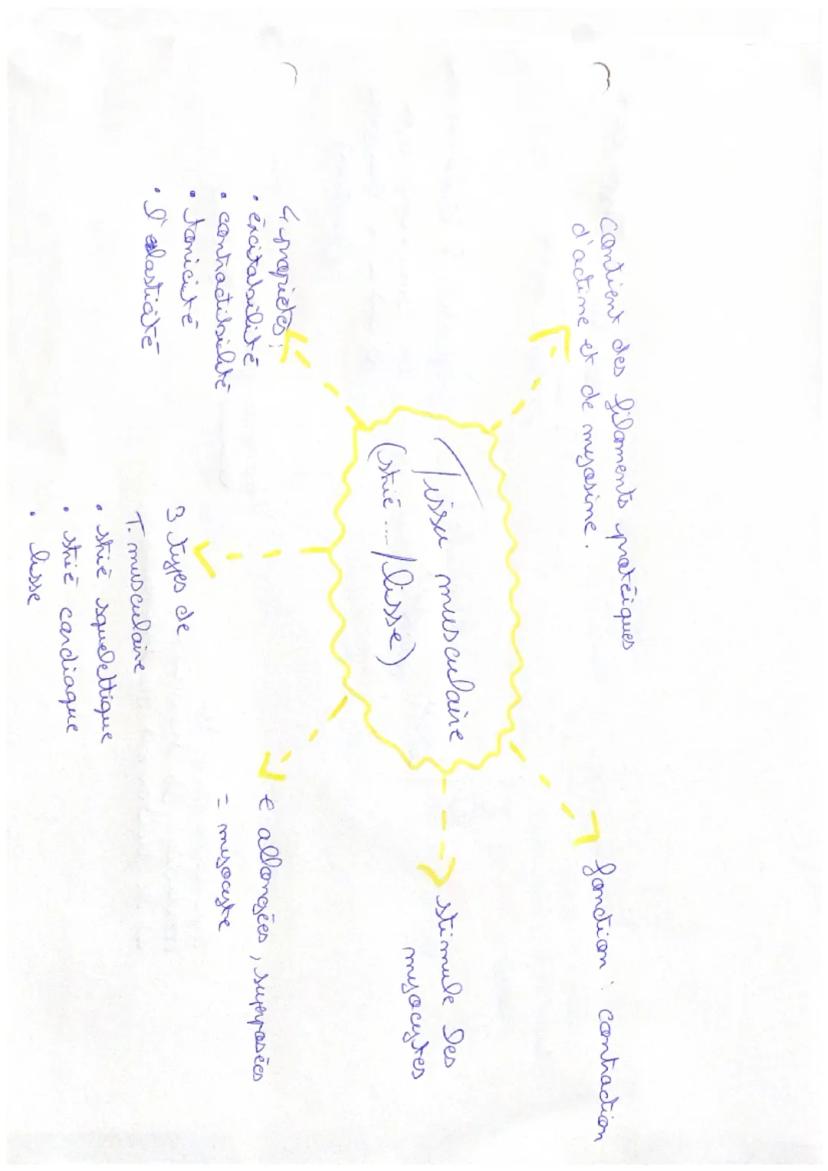 contient des filaments protéiques
d'actine et de myosine.
fonction : contraction
Tissu musculaire
(strié .... / lisse)
stimule des
myocytes
4 propriétés :
• éxcitabilité
• contractibilité
• tonicité
• l'elasticité
3 types de
T. musculaire
• strié squelettique
• strié cardiaque
• lisse
e allongées, superposées
= myocyte